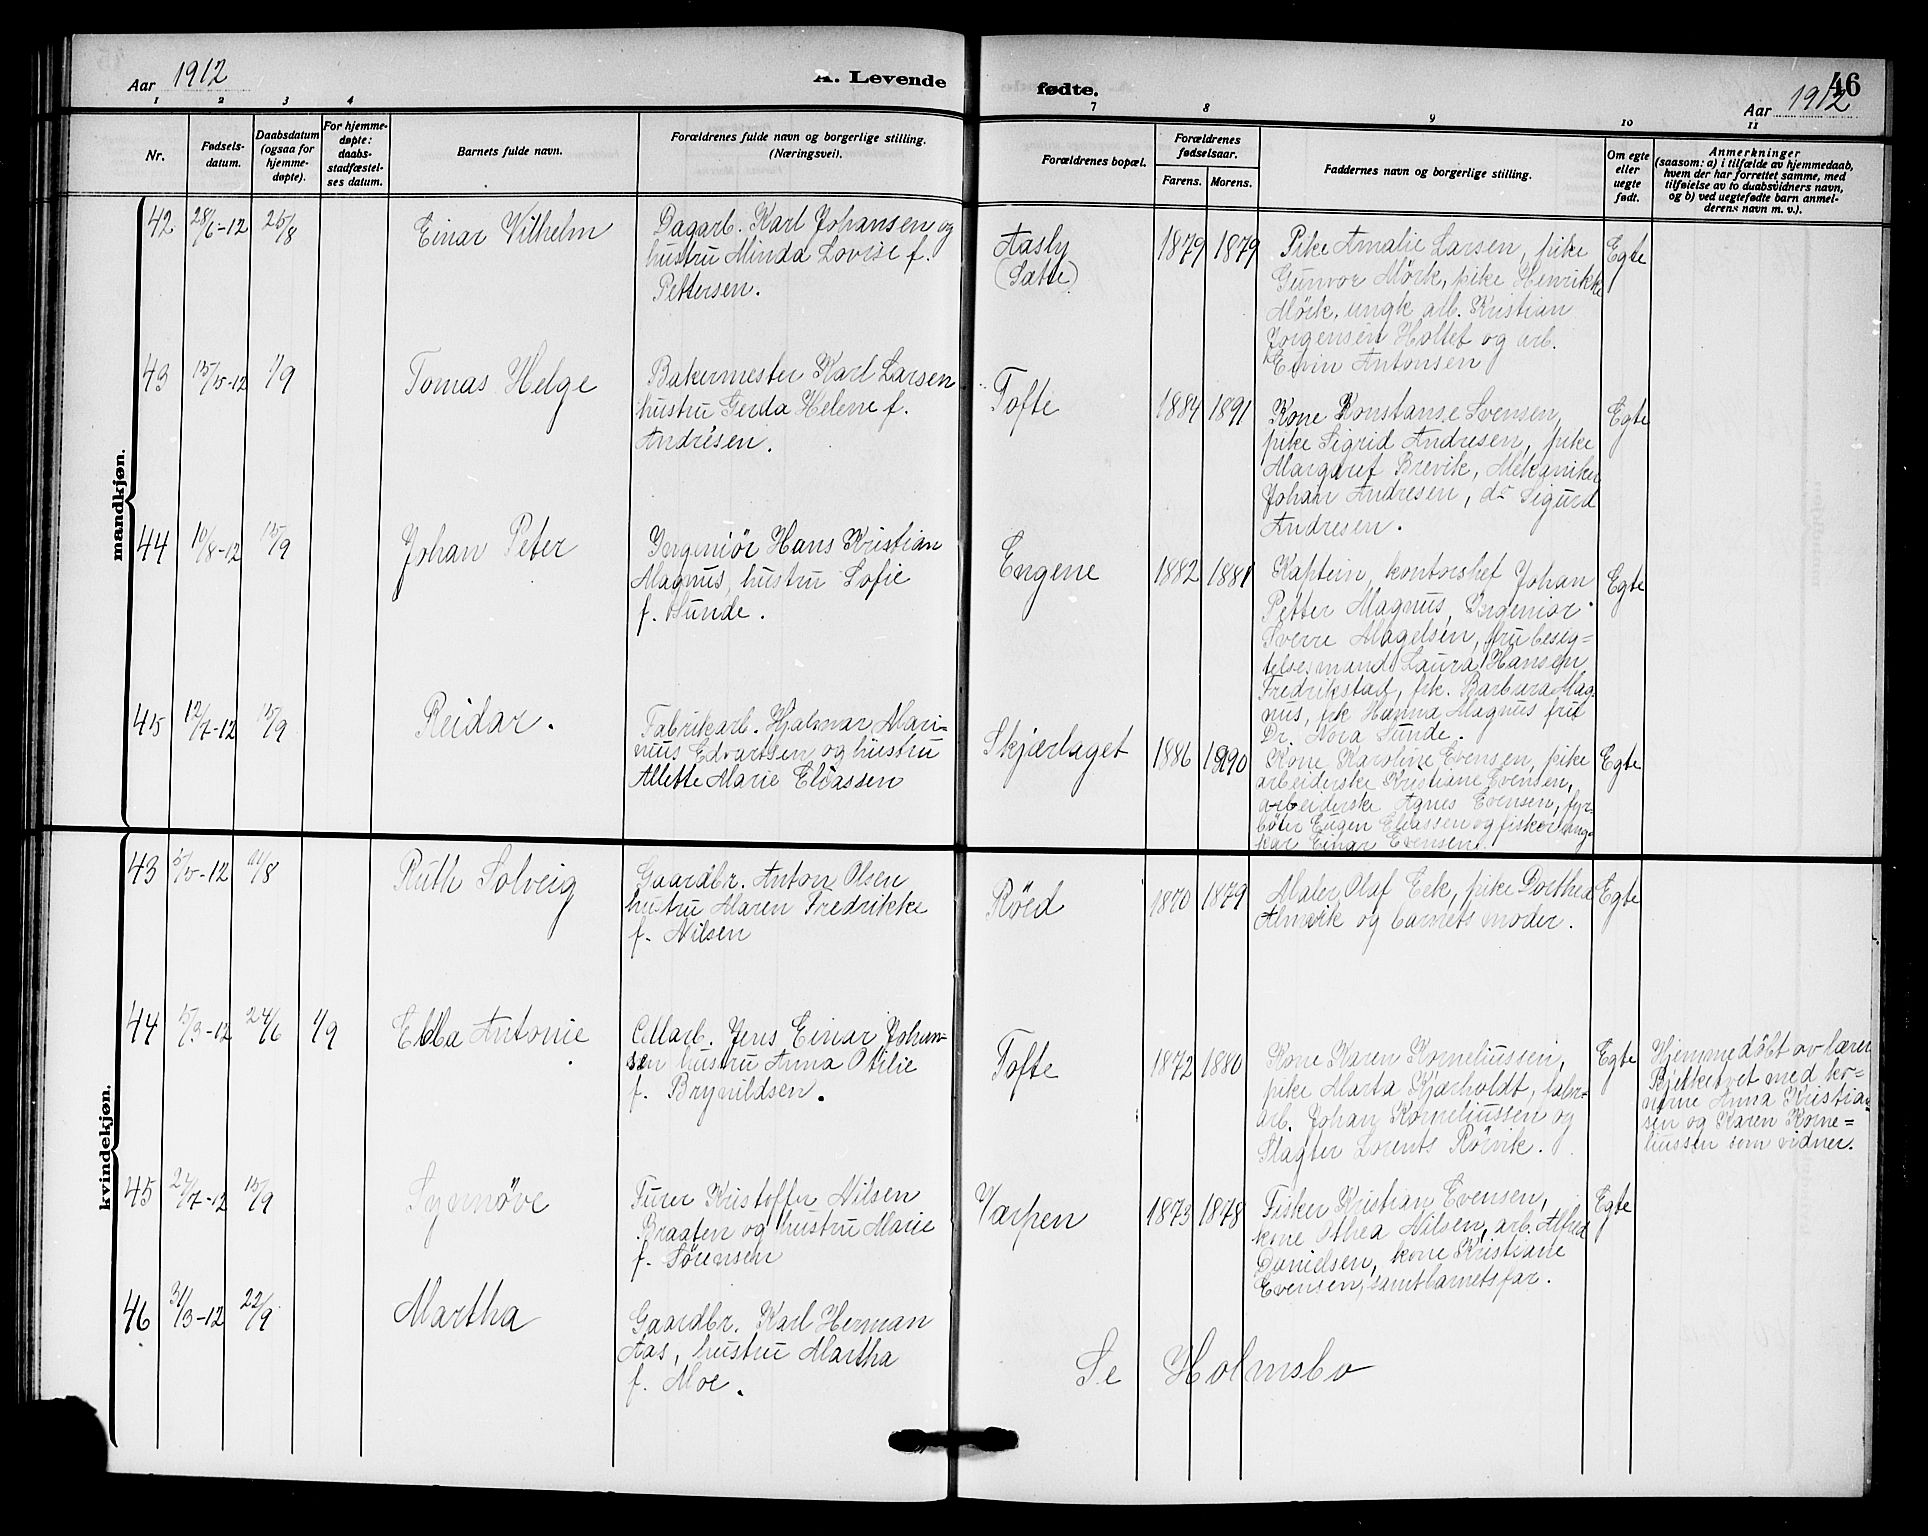 Aar 1912
A. Levende
fødte.
46
Aar 1912
1 2 3 4
7 8 9 10 11
Nr.
Fødsels-
datum.
Daabsdatum
(ogsaa for
hjemme-
døpte).
For hjemme-
døpte:
daabs-
stadfæstel-
ses datum.
Barnets fulde navn.
Forældrenes fulde navn og borgerlige stilling.
(Næringsvei).
Forældrenes bopæl.
Forældrenes
fødselsaar.
Farens. Morens.
Faddernes navn og borgerlige stilling.
Om egte
eller
uegte
født.
Anmerkninger
(saasom: a) i tilfælde av hjemmedaab,
hvem der har forrettet samme, med
tilføielse av to daabsvidners navn,
og b) ved uegtefødte barn anmel-
derens navn m. v.).
mandkjøn.
42 28/6-12 25/8
Einar Vilhelm
Dagarb. Karl Johansen og
hustru Minda Lovise f.
Pettersen.
Aasly
(Sætre)
1879 1879
Pike Amalie Larsen, pike
Gunvor Mörk, pike Henrikke
Mörk, ungk. arb. Kristian
Jörgensen Holtet og arb.
Ervin Antonsen
Egte
43 15/5-12 1/9
Tomas Helge
Bakermester Karl Larsen
hustru Gerda Helene f.
Andresen.
Tofte
1884 1891
Kone Konstanse Svensen,
pike Sigrid Andresen, pike
Margaret Brevik, Mekaniker
Johan Andresen, do Sigurd
Andresen.
Egte
44 10/8-12 15/9
Johan Peter
Ingeniör Hans Kristian
Magnus, hustru Sofie
f. Sunde.
Engene
1882 1881
Kaptein, kontorshef Johan
Petter Magnus, Ingeniör
Sverre Magelsen, fru besig-
telsesmand Laura Hansen
Fredrikstad, frk. Barbara Mag-
nus, frk Hanna Magnus fru
Dr. Nora Sunde.
Egte
45 12/7-12 15/9
Reidar.
Fabrikarb. Hjalmar Mari-
nius Edvartsen og hustru
Allette Marie Eliassen
Skjærlaget
1886 1890
Kone Karoline Evensen, pike
arbeiderske Kristiane Evensen,
arbeiderske Agnes Evensen, fyr-
böter Eugen Eliassen og fisker ung-
kar Einar Evensen.
Egte
kvindekjøn.
43 5/5-12 /8
Ruth Solveig
Gaardbr. Anton Olsen
hustru Maren Fredrikke
f. Nilsen
Röed
1870 1879
Maler Olaf Eek, pike Dorthea
Almvik og barnets moder.
Egte
44 5/3-12 24/6 1/9
Ella Antonie
Cellarb. Jens Einar Johan-
sen hustru Anna Otilie
f. Brynildsen.
Tofte
1872 1880
Kone Karen Korneliussen,
pike Marta Kjærholdt, fabr-
arb. Johan Korneliussen og
Slagter Lorents Rörvik.
Egte
Hjemmedöbt av lærer
Bjelketvet med ko-
nerne Anna Kristian-
sen og Karen Korne-
liussen som vidner.
45 2/7-12 15/9
Synnöve
Furer Kristoffer Nilsen
Braaten og hustru Marie
f. Sörensen
Varpen
1873 1878
Fisker Kristian Evensen,
kone Othea Nilsen, arb. Alfred
Danielsen, kone Kristiane
Evensen, samt barnets far.
Egte
46 31/3-12 22/9
Martha
Gaardbr. Karl Herman
Aas, hustru Martha
f. Moe.
Se Holmsbo